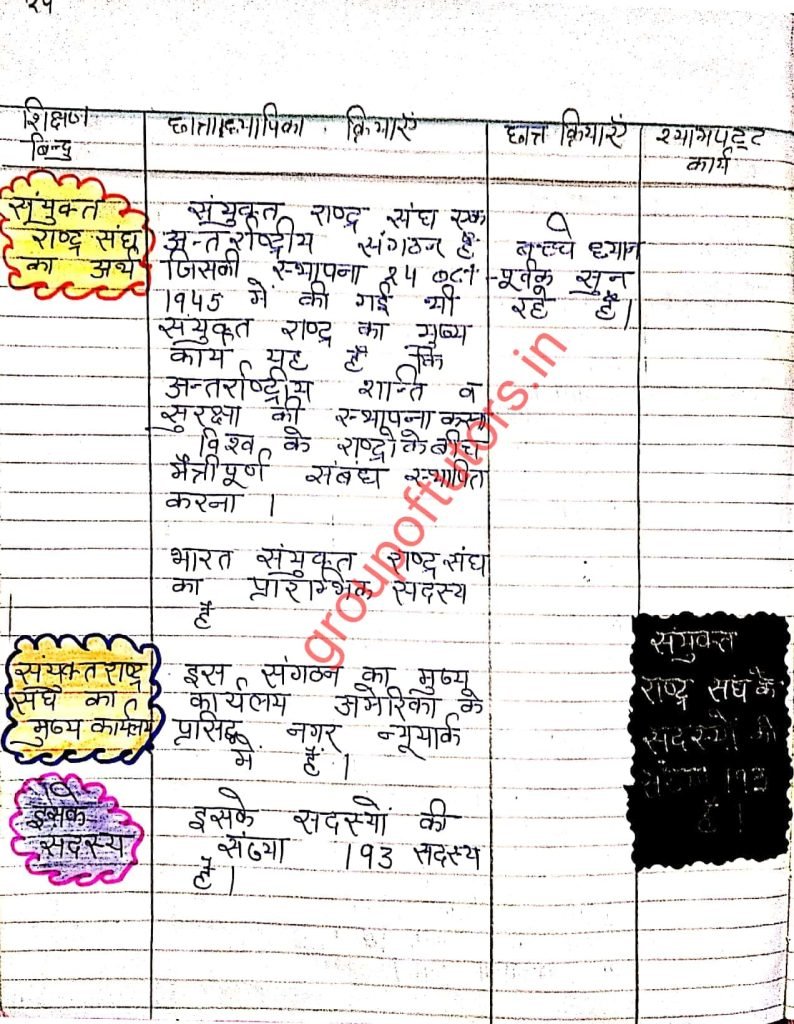 24
शिक्षण बिन्दु
छात्राध्यापिका क्रियाऐं
छात्त क्रियाऐं
श्यामपट्ट कार्य
संयुक्त
राष्ट्र संघ
का अर्थ
संयुक्त राष्ट्र संघ एक
अन्तर्राष्ट्रीय संगठन है
जिसकी स्थापना 24 oct
1945 में की गई थी
संयुक्त राष्ट्र का मुख्य
कार्य यह है कि
अन्तर्राष्ट्रीय शान्ति व
सुरक्षा की स्थापना करना
विश्व के राष्ट्रों के बीच
मैत्तीपूर्ण संबंध स्थापित
करना ।
बच्चे ध्यान
-पूर्वक सुन
रहे है।
भारत संयुक्त राष्ट्र संघ
का प्रारम्भिक सदस्य
है
संयुक्त राष्ट्र
संघ का
मुख्य कार्यलय
इस संगठन का मुख्य
कार्यलय अमेरिका के
प्रसिद्ध नगर न्यूयार्क
में हैं ।
इसके
सदस्य
इसके सदस्यों की
संख्या 193 सदस्य
हैं।
संयुक्त
राष्ट्र संघ के
सदस्यों की
संख्या 193
है ।
groupoftutors.in